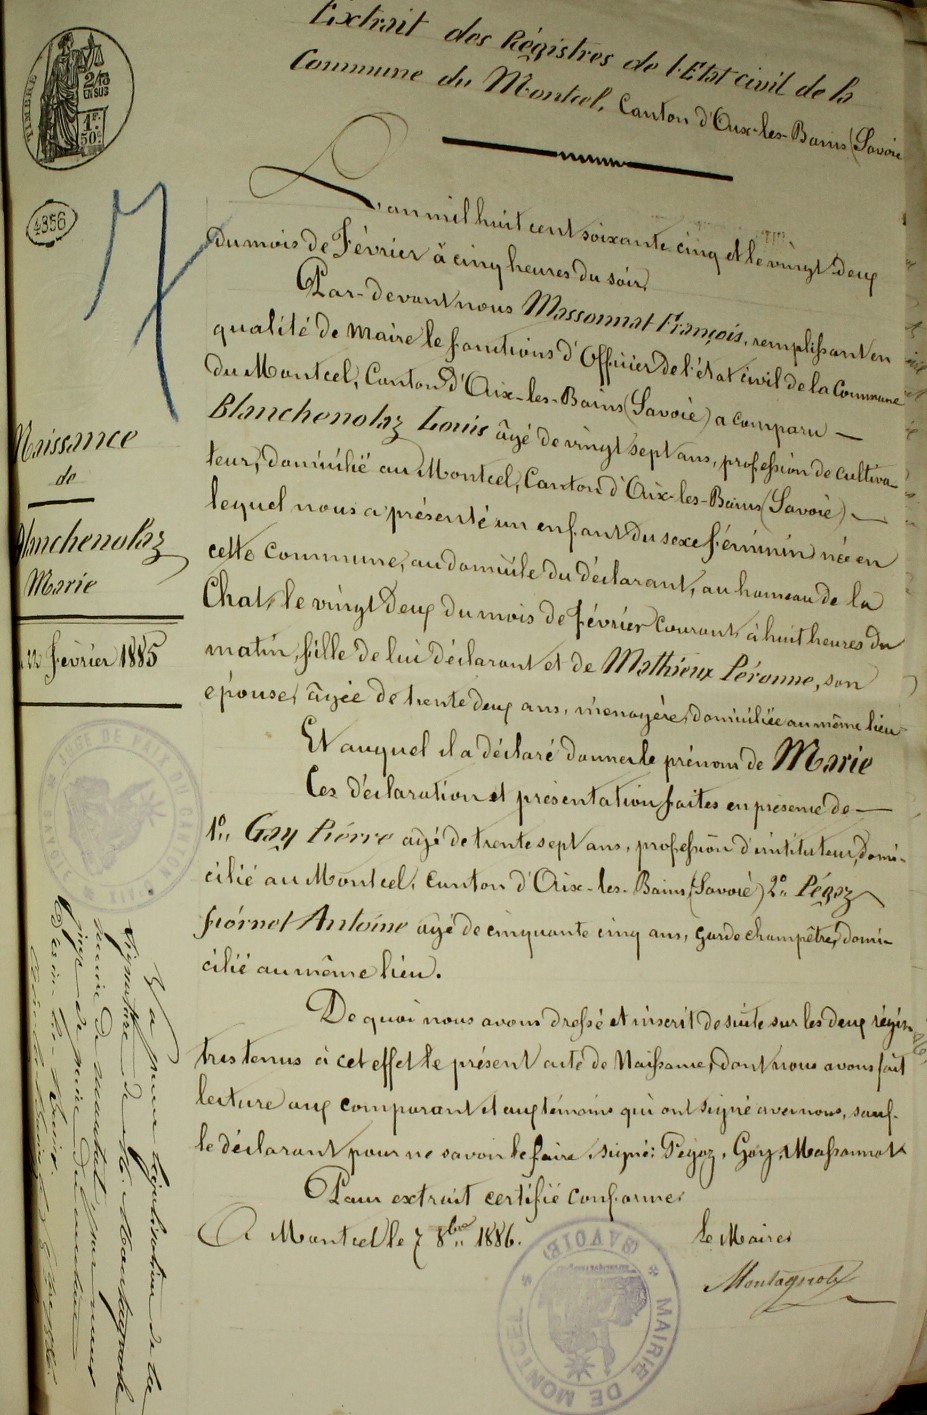 Extrait des Régistres de l'Etat civil de la
Commune du Montcel, Canton d'Aix-les-Bains (Savoie
TIMBRE
2/10
EN SUS
1F.
50C.
4356
7
L'an mil huit cent soixante cinq et le vingt deux
du mois de Février à cinq heures du soir,
Par-devant nous Massonnat François, remplissant en
qualité de Maire le fonctions d'Officier de l'état civil de la Commune
du Montcel, Canton d'Aix-les-Bains (Savoie) a comparu —
Blanchenolaz Louis âgé de vingt sept ans, profession de cultiva-
teur, domicilié au Montcel, Canton d'Aix-les-Bains (Savoie) —
lequel nous a présenté un enfant du sexe féminin née en
cette Commune, au domicile du déclarant, au hameau de la
Chat, le vingt deux du mois de février courant à huit heures du
matin, fille de lui déclarant et de Mathieux Péronne, son
epouse, âgée de trente deux ans, ménagère, domiciliée au même lieu
Et auquel il a déclaré donner le prénom de Marie
Ces déclaration et présentation faites en présence de —
1° Gay Piérre agé de trente sept ans, profession d'instituteur, domi-
cilié au Montcel, Canton d'Aix-les-Bains (Savoie) 2° Pégaz
Fiórnet Antoine agé de cinquante cinq ans, garde champêtre, domi-
cilié au même lieu.
De quoi nous avons dressé et inscrit de suite sur les deux régis-
tres tenus à cet effet le présent acte de Naissance, dont nous avons fait
lecture aux comparant et aux témoins qui ont signé avec nous, sauf
le déclarant pour ne savoir le faire, signé: Pégaz, Gay, Massonnat
Pour extrait certifié conforme.
A Montcel le 7 8bre 1886.
Le Maire
Montagnole
Naissance
de
Blanchenolaz
Marie
22 février 1885
JUGE DE PAIX DU CANTON
MAIRIE DE MONTCEL
(SAVOIE)
Vu pour légalisation de la
signature de Mr. Montagnole
maire de Montcel, par nous
juge de paix du canton
d'Aix-les-Bains.